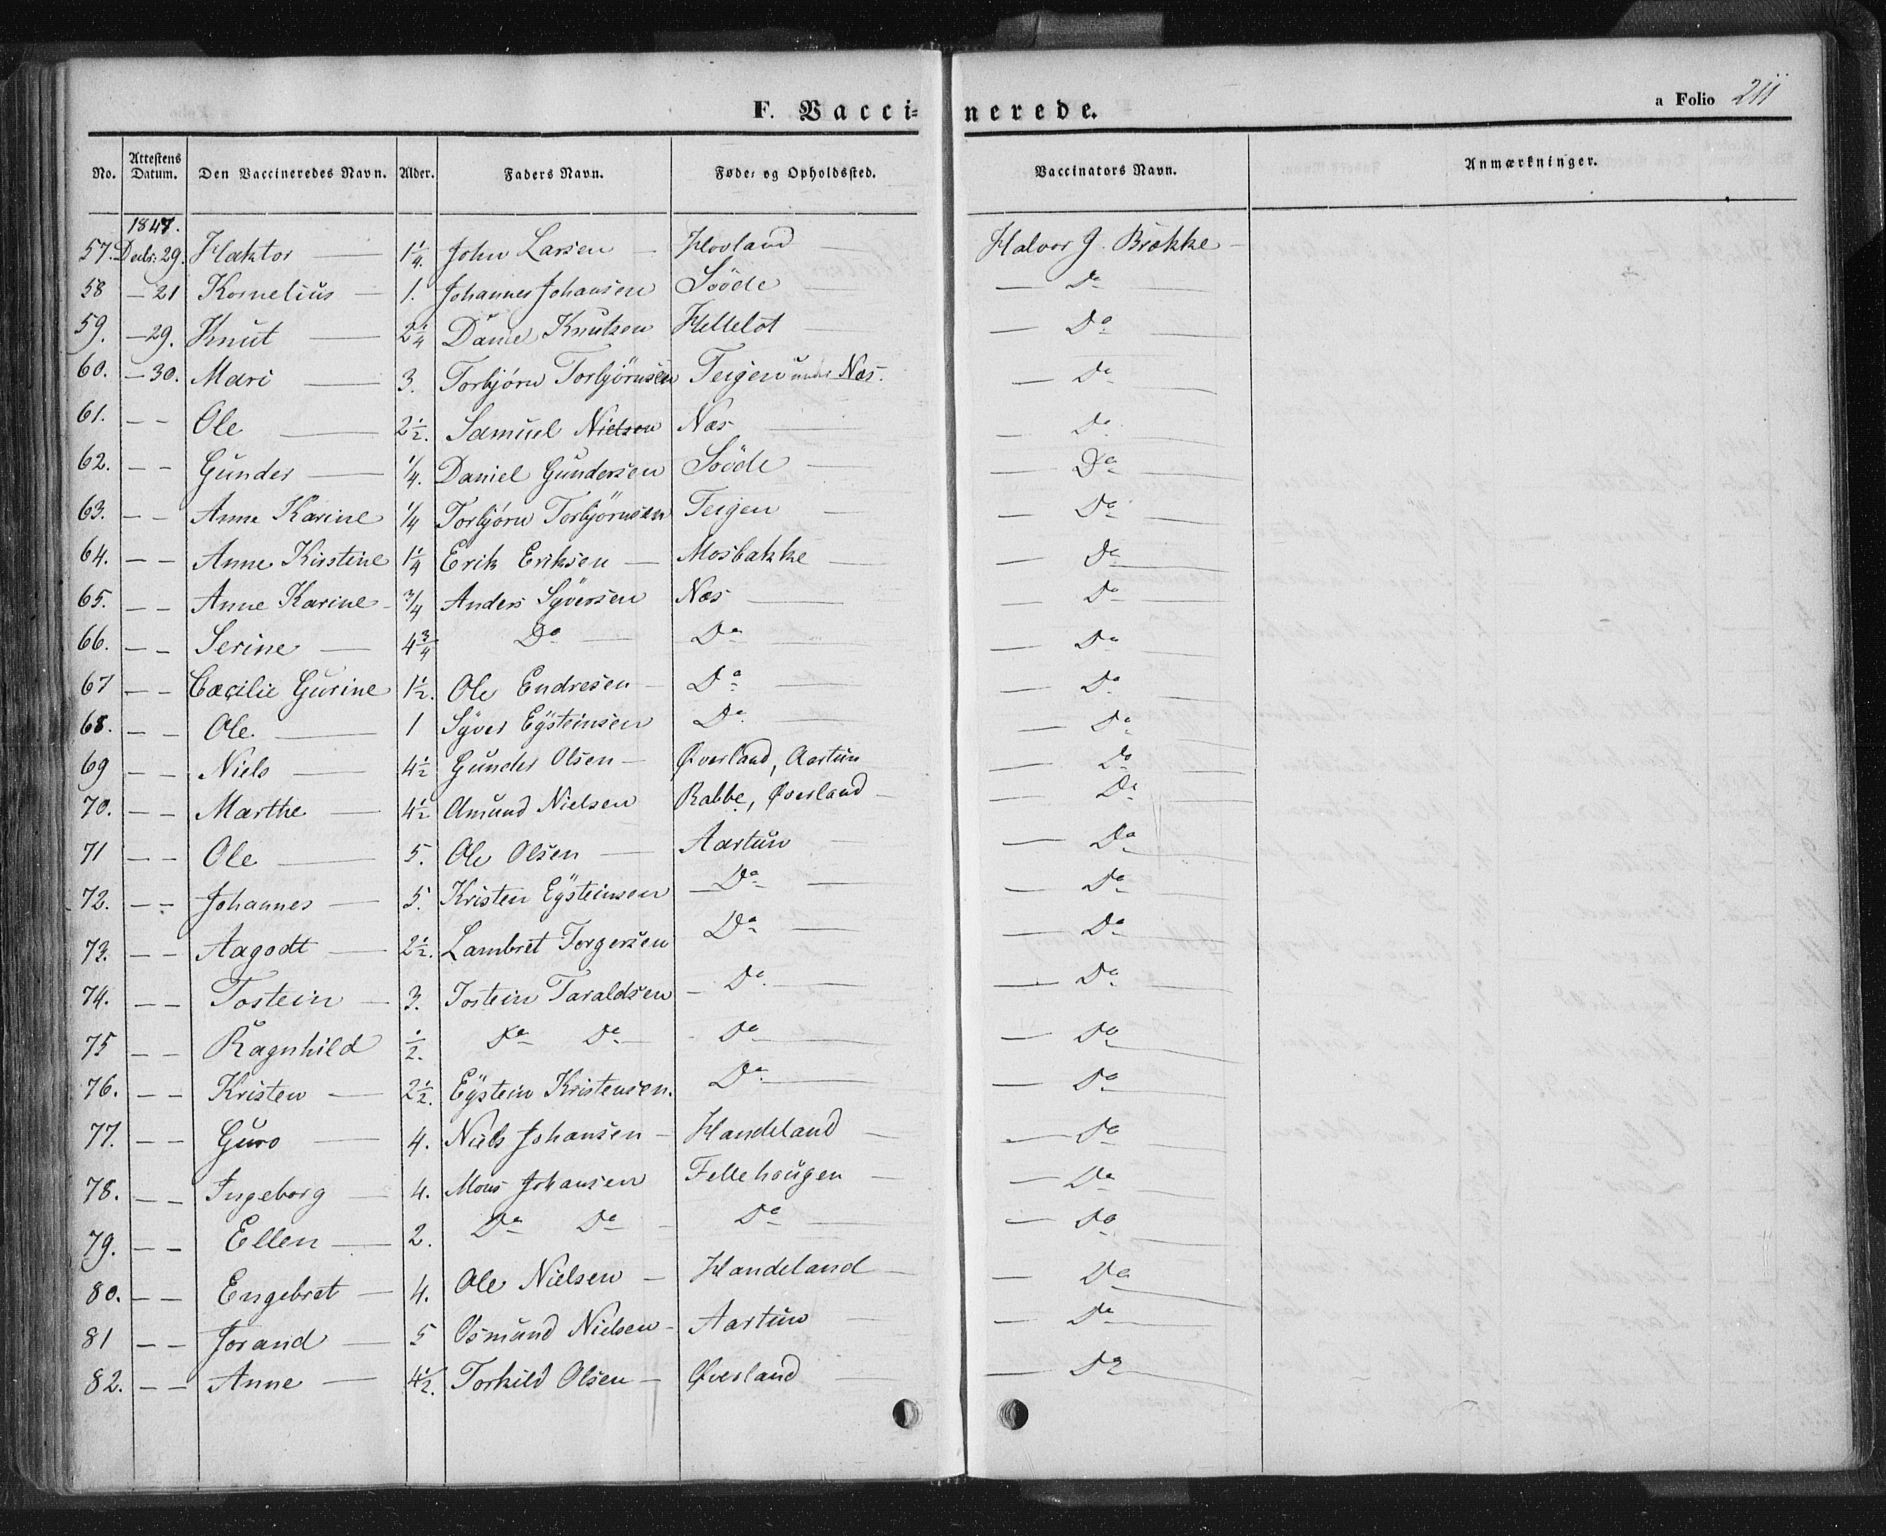 F. Vaccinerede.
a Folio 211
No. Attestens Datum. Den Vaccineredes Navn. Alder. Faders Navn. Føde- og Opholdssted. Vaccinators Navn. Anmærkninger.
1847.
57. Decbr: 29. Haktor — 1 1/4. John Larsen — Hovland — Halvor J. Brække —
58 — 21 Kornelius — 1. Johannes Johansen Sööde — — Do —
59. — 29. Knut — 2 1/4 Daniel Knutsen Hellelot — — Do —
60. — 30. Mari — 3. Torbjörn Torbjörnsen Teigen under Næs. — Do —
61. — — Ole — 2 1/2. Samuel Nielsen Næs — — Do —
62. — — Gunder — 1/4. Daniel Gundersen Sööde — — Do —
63. — — Anne Karine 1/4 Torbjörn Torbjörnsen Teigen — — Do —
64. — — Anne Kirstine 1 1/4 Erik Eriksen — Mosbakke — — Do —
65. — — Anne Karine — 3/4 Anders Syversen Næs — — Do —
66. — — Serine — 4 3/4 Do — Do — — Do —
67 — — Cæcilie Gurine 1 1/2. Ole Endresen — Do — — Do —
68. — — Ole — 1 Syver Eysteinsen Do — — Do —
69 — — Niels — 4 1/2 Gunder Olsen — Øverland, Aartun — Do —
70. — — Marthe — 4 1/2 Amund Nielsen Rabbe, Øverland — — Do —
71 — — Ole — 5. Ole Olsen — Aartun — — Do —
72. — — Johannes — 5. Kristen Eysteinsen — Do — — Do —
73. — — Aagodt — 2 1/2. Lambret Torgersen Do — — Do —
74. — — Tostein — 3. Tostein Taraldsen — Do — — Do —
75 — — Ragnhild 1/2. Do Do — Do — — Do —
76. — — Kristen — 2 1/2. Eystein Kristensen. Do — — Do —
77. — — Guro — 4. Niels Johansen — Handeland — — Do —
78. — — Ingeborg — 4. Mons Johansen Fellehaugen — — Do —
79. — — Ellen — 2. Do Do — Do — — Do —
80. — — Engebret — 4. Ole Nielsen — Handeland — — Do —
81 — — Jorand — 5 Osmund Nielsen — Aartun — — Do —
82. — — Anne — 4 1/2. Torkild Olsen — Øverland — — Do —